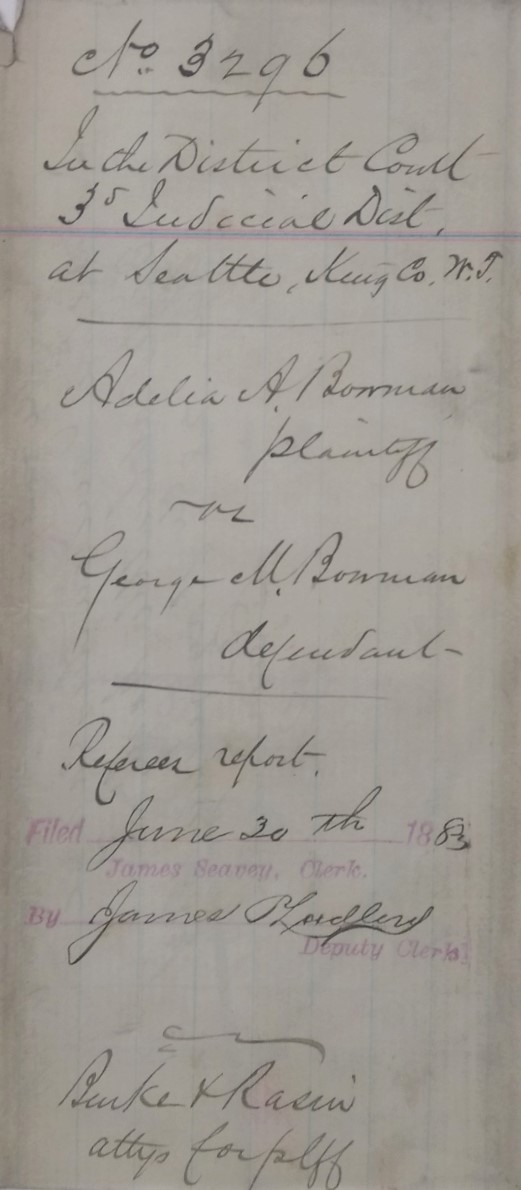 No. 3296
In the District Court
3d Judicial Dist.
at Seattle, King Co. W.T.
Adelia A. Bowman
plaintiff
vs
George M. Bowman
defendant
Referees report.
Filed June 30th 1883
James Seavey, Clerk.
By James P Ludlow
Deputy Clerk
Burke & Rasin
attys for plff